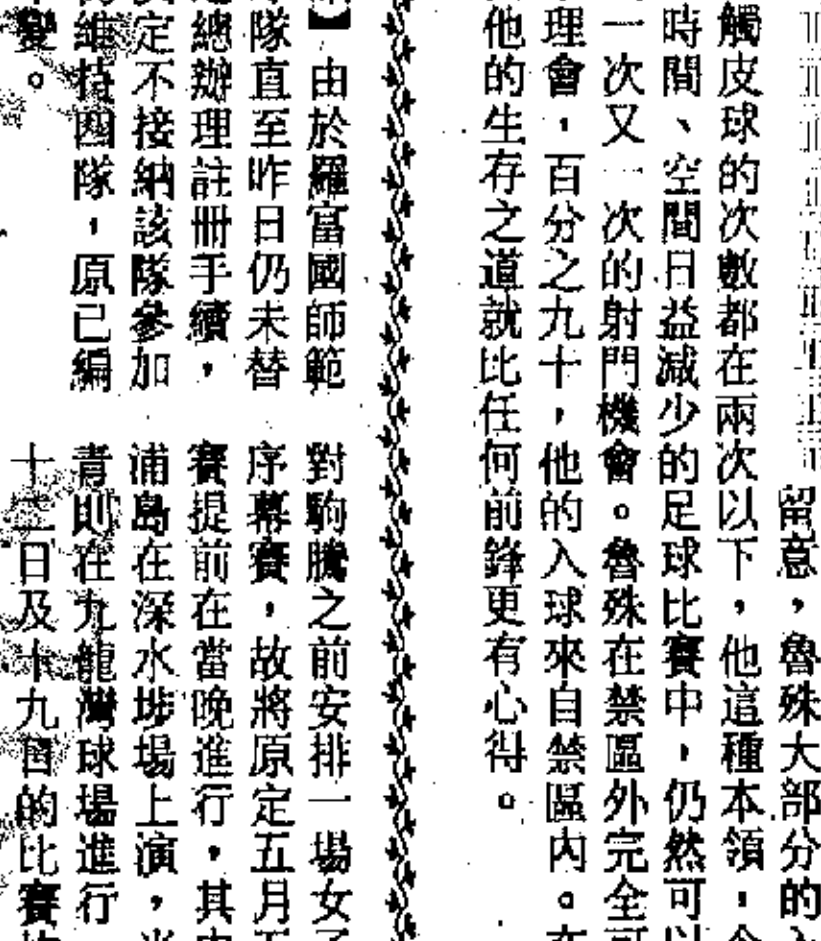 留意，魯殊大部分的入
觸皮球的次數都在兩次以下，他這種本領，令
時間、空間日益減少的足球比賽中，仍然可以
一次又一次的射門機會。魯殊在禁區外完全可
理會，百分之九十，他的入球來自禁區內。在
他的生存之道就比任何前鋒更有心得。
由於羅富國師範
隊直至昨日仍未替
總辦理註冊手續，
定不接納該隊參加
維持四隊，原已編
變。
對駒騰之前安排一場女子
序幕賽，故將原定五月五
賽提前在當晚進行，其
浦島在深水埗場上演，
青則在九龍灣球場進行
十二日及十九日的比賽